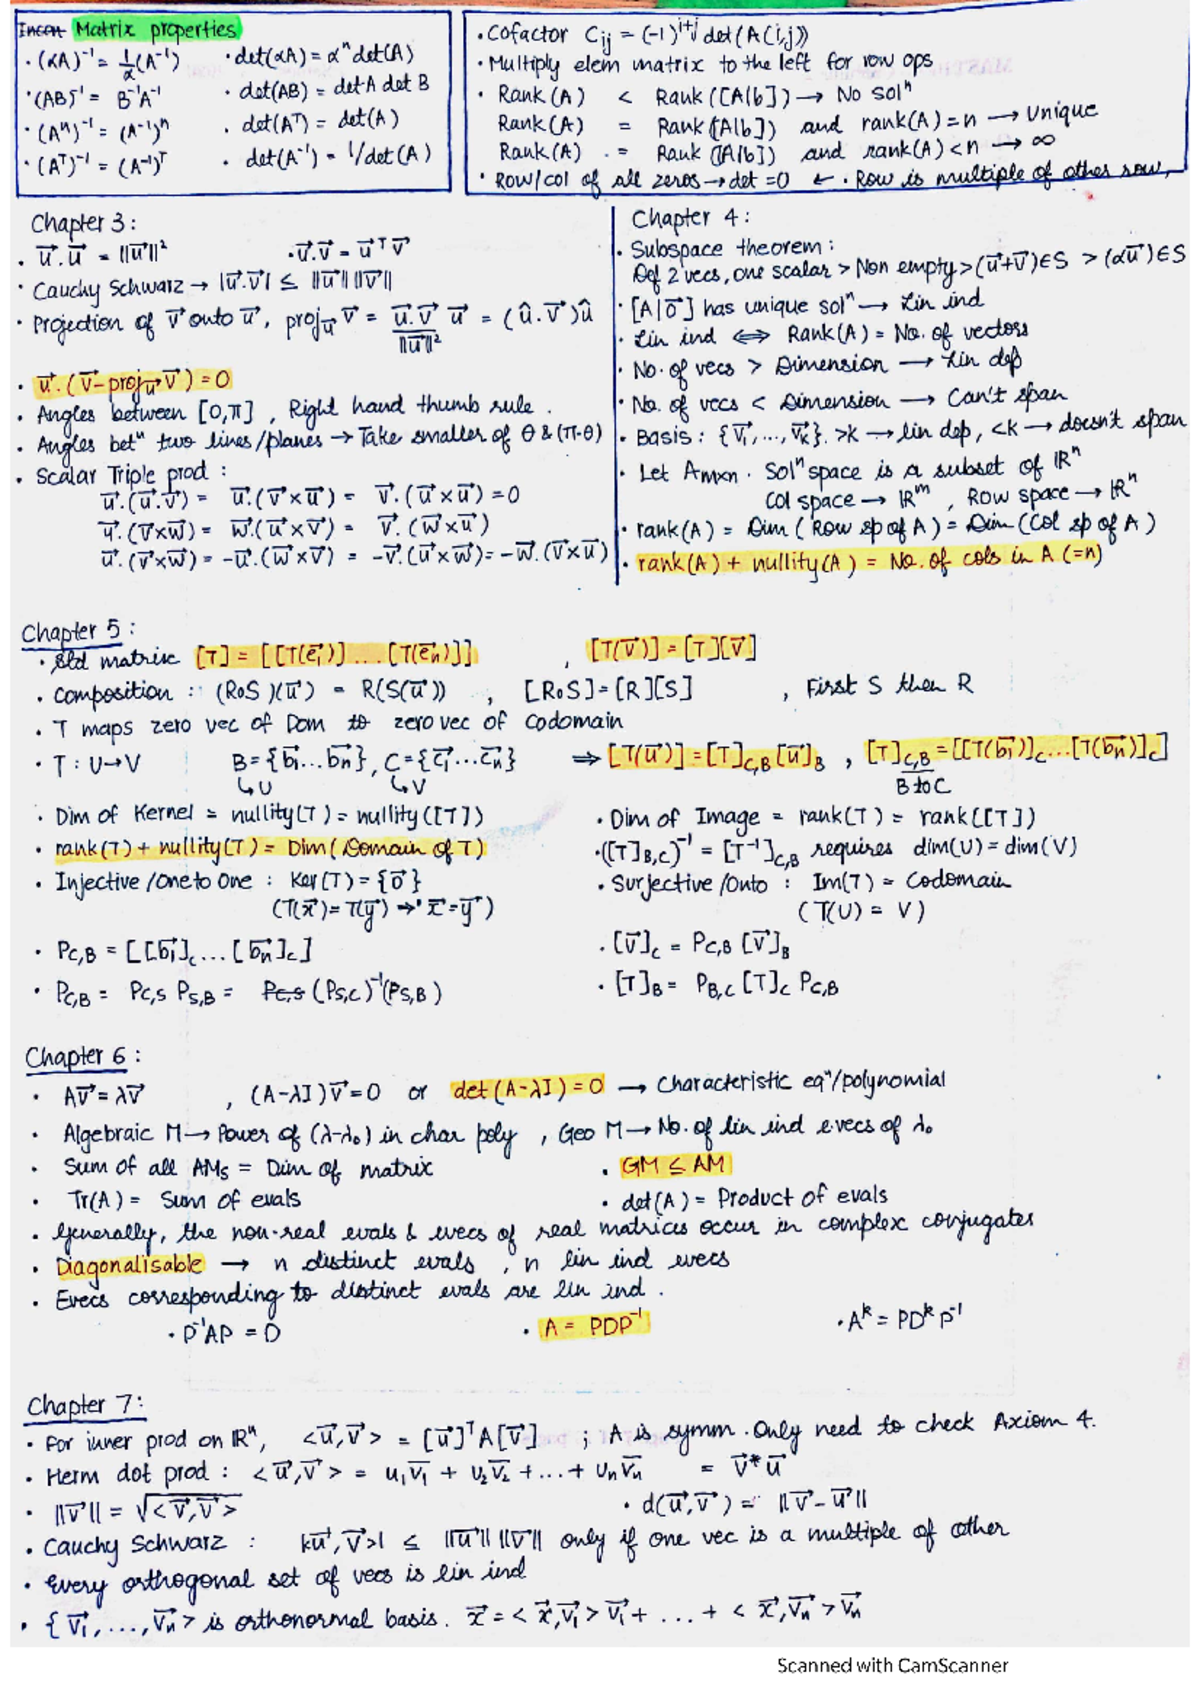 Matrix properties
· (αA)⁻¹ = 1/α (A⁻¹) · det(αA) = αⁿ det(A)
· (AB)⁻¹ = B⁻¹A⁻¹ · det(AB) = det A det B
· (Aⁿ)⁻¹ = (A⁻¹)ⁿ · det(Aᵀ) = det(A)
· (Aᵀ)⁻¹ = (A⁻¹)ᵀ · det(A⁻¹) = 1/det(A)
· Cofactor Cij = (-1)^(i+j) det(A(i,j))
· Multiply elem matrix to the left for row ops
· Rank(A) < Rank([A|b]) → No solⁿ
Rank(A) = Rank([A|b]) and rank(A)=n → Unique
Rank(A) = Rank([A|b]) and rank(A)<n → ∞
· Row/col of all zeros → det = 0 ← · Row is multiple of other row
Chapter 3:
· u⃗.u⃗ = ||u⃗||² · u⃗.v⃗ = u⃗ᵀv⃗
· Cauchy Schwarz → |u⃗.v⃗| ≤ ||u⃗|| ||v⃗||
· Projection of v⃗ onto u⃗, proj_u⃗ v⃗ = (u⃗.v⃗ / ||u⃗||²) u⃗ = (û.v⃗)û
· u⃗.(v⃗-proj_u⃗ v⃗) = 0
· Angles between [0,π], Right hand thumb rule.
· Angles betⁿ two lines/planes → Take smaller of θ & (π-θ)
· Scalar Triple prod :
u⃗.(u⃗.v⃗) = u⃗.(v⃗×u⃗) = v⃗.(u⃗×u⃗) = 0
u⃗.(v⃗×w⃗) = w⃗.(u⃗×v⃗) = v⃗.(w⃗×u⃗)
u⃗.(v⃗×w⃗) = -u⃗.(w⃗×v⃗) = -v⃗.(u⃗×w⃗) = -w⃗.(v⃗×u⃗)
Chapter 4:
· Subspace theorem :
Of 2 vecs, one scalar > Non empty > (u⃗+v⃗)∈S > (αu⃗)∈S
· [A|0⃗] has unique solⁿ → Lin ind
· Lin ind ⟺ Rank(A) = No. of vectors
· No. of vecs > Dimension → Lin dep
· No. of vecs < Dimension → Can't span
· Basis : {v⃗₁,...,v⃗k}. >k → lin dep, <k → doesn't span
· Let Amxn. Solⁿ space is a subset of ℝⁿ
Col space → ℝᵐ, Row space → ℝⁿ
· rank(A) = Dim (Row sp of A) = Dim (Col sp of A)
· rank(A) + nullity(A) = No. of cols in A (=n)
Chapter 5 :
· Std matrix [T] = [[T(e⃗₁)] .... [T(e⃗n)]] , [T(v⃗)] = [T][v⃗]
· Composition : (RoS)(u⃗) = R(S(u⃗)) , [RoS] = [R][S] , First S then R
· T maps zero vec of Dom to zero vec of Codomain
· T : U→V B = {b⃗₁...b⃗n}, C = {c⃗₁...c⃗n} ⇒ [T(u⃗)] = [T]C,B [u⃗]B , [T]C,B = [[T(b⃗₁)]C ... [T(b⃗n)]C]
↳ U ↳ V B to C
· Dim of Kernel = nullity(T) = nullity([T]) · Dim of Image = rank(T) = rank([T])
· rank(T) + nullity(T) = Dim (Domain of T) · ([T]B,C)⁻¹ = [T⁻¹]C,B requires dim(U) = dim(V)
· Injective/One to One : Ker(T) = {0⃗} · Surjective/Onto : Im(T) = Codomain
(T(x⃗) = T(y⃗) → x⃗ = y⃗) (T(U) = V)
· PC,B = [[b⃗₁]C ... [b⃗n]C] · [v⃗]C = PC,B [v⃗]B
· PC,B = PC,S PS,B = PC,S (PS,C)⁻¹(PS,B) · [T]B = PB,C [T]C PC,B
Chapter 6 :
· Av⃗ = λv⃗ , (A-λI)v⃗ = 0 or det(A-λI) = 0 → Characteristic eqⁿ/polynomial
· Algebraic M → Power of (λ-λ₀) in char poly , Geo M → No. of lin ind evecs of λ₀
· Sum of all AMs = Dim of matrix · GM ≤ AM
· Tr(A) = Sum of evals · det(A) = Product of evals
· Generally, the non-real evals & evecs of real matrices occur in complex conjugates
· Diagonalisable → n distinct evals , n lin ind evecs
· Evecs corresponding to distinct evals are lin ind.
· P⁻¹AP = D · A = PDP⁻¹ · Aᵏ = PDᵏP⁻¹
Chapter 7:
· For inner prod on ℝⁿ, <u⃗,v⃗> = [u⃗]ᵀA[v⃗] ; A is symm. Only need to check Axiom 4.
· Herm dot prod : <u⃗,v⃗> = u₁v̄₁ + u₂v̄₂ + ... + unv̄n = v⃗*u⃗
· ||v⃗|| = √<v⃗,v⃗> · d(u⃗,v⃗) = ||v⃗-u⃗||
· Cauchy Schwarz : |<u⃗,v⃗>| ≤ ||u⃗|| ||v⃗|| only if one vec is a multiple of other
· Every orthogonal set of vecs is lin ind
· {v⃗₁,...,v⃗n> is orthonormal basis. x⃗ = <x⃗,v⃗₁>v⃗₁ + ... + <x⃗,v⃗n>v⃗n
Scanned with CamScanner